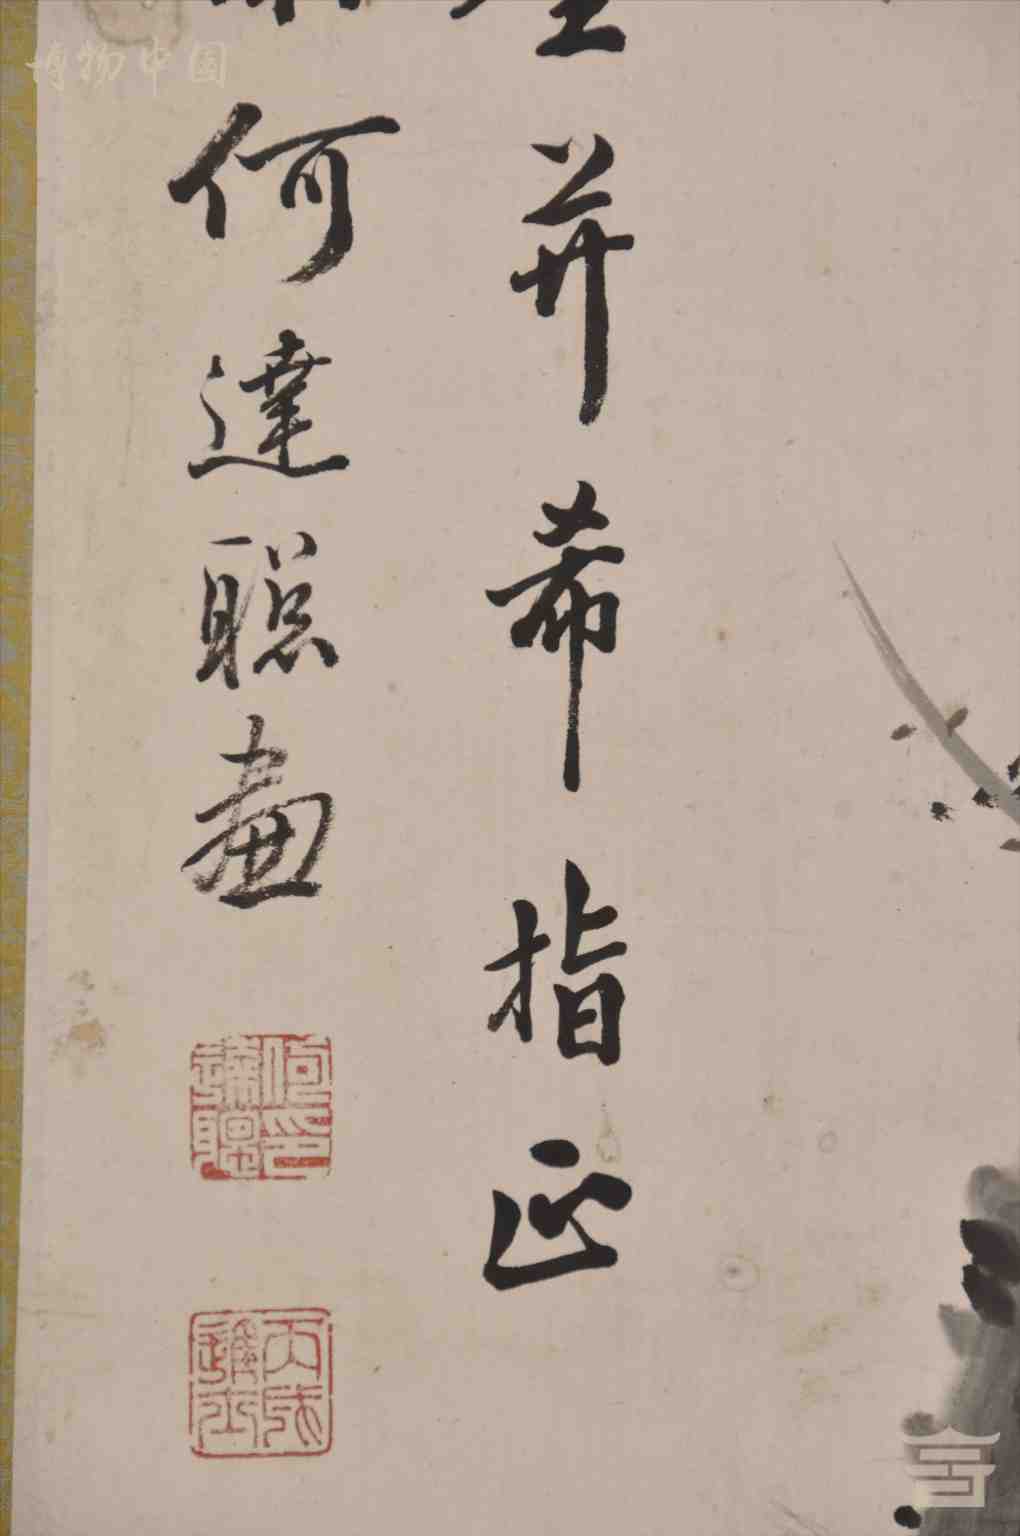 并希指正
何達聰畫
何達聰印
丙戌進士
博物中国